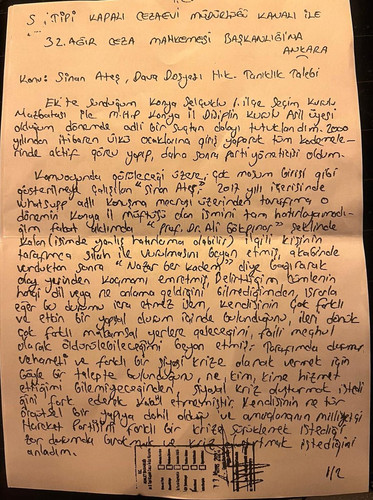 S TİPİ KAPALI CEZAEVİ MÜDÜRLÜĞÜ KANALI İLE
32. AĞIR CEZA MAHKEMESİ BAŞKANLIĞINA
ANKARA
Konu: Sinan Ateş, Dava Dosyası Hk. Tanıklık Talebi
Ek'te sunduğum Konya Selçuklu 1. ilçe Seçim Kurulu
Mazbatası ile M.H.P Konya İl Disiplin Kurulu Asil üyesi
olduğum dönemde adli bir suçtan dolayı tutuklandım. 2000
yılından itibaren ülkü ocaklarına giriş yaparak tüm kademele-
rinde aktif görev yapıp, daha sonra parti yöneticisi oldum.
Kamuoyunda görüleceği üzere, çok masum birisi gibi
gösterilmeye çalışılan "Sinan Ateş," 2017 yılı içerisinde
whatsupp adlı konuşma mecrası üzerinden tarafıma o
dönemin Konya il müftüsü olan ismini tam hatırlayamadı-
ğım fakat aklımda "Prof. Dr. Ali" şeklinde
kalan (isimde yanlış hatırlama olabilir) ilgili kişinin
tarafımca silah ile vurulmasını beyan etmiş, akabinde
vurduktan sonra " ber kadem" diye bağırarak
olay yerinden kaçmamı emretmiş, Belirttiğim cümlenin
hangi dil veya ne anlama geldiğini bilmediğimden, ısrarla
eğer bu durumu icra etmez isem, kendisinin çok farklı
ve etkin bir yapısal durum içinde bulunduğunu, ileri dönük
çok farklı makamsal yerlere geleceğini, faili meçhul
olarak öldürülebileceğimi beyan etmiş. Tarafımca durumun
vehameti ve farklı bir siyasi krize olanak vermek için
böyle bir talepte bulunduğunu, ne, kim, kime hizmet
ettiğini bilemiyeceğinden siyasal kriz çıkartmak istedi
ğini fark ederek kabul etmemiştir. Kendisinin ne tür
örgütsel bir yapıya dahil olduğu ve amaçlarının milliyetçi
Hareket Partisini farklı bir krize sürüklemek istediği
zor durumda bırakmak ve kriz çıkartmak istediğini
anladım.
1/2